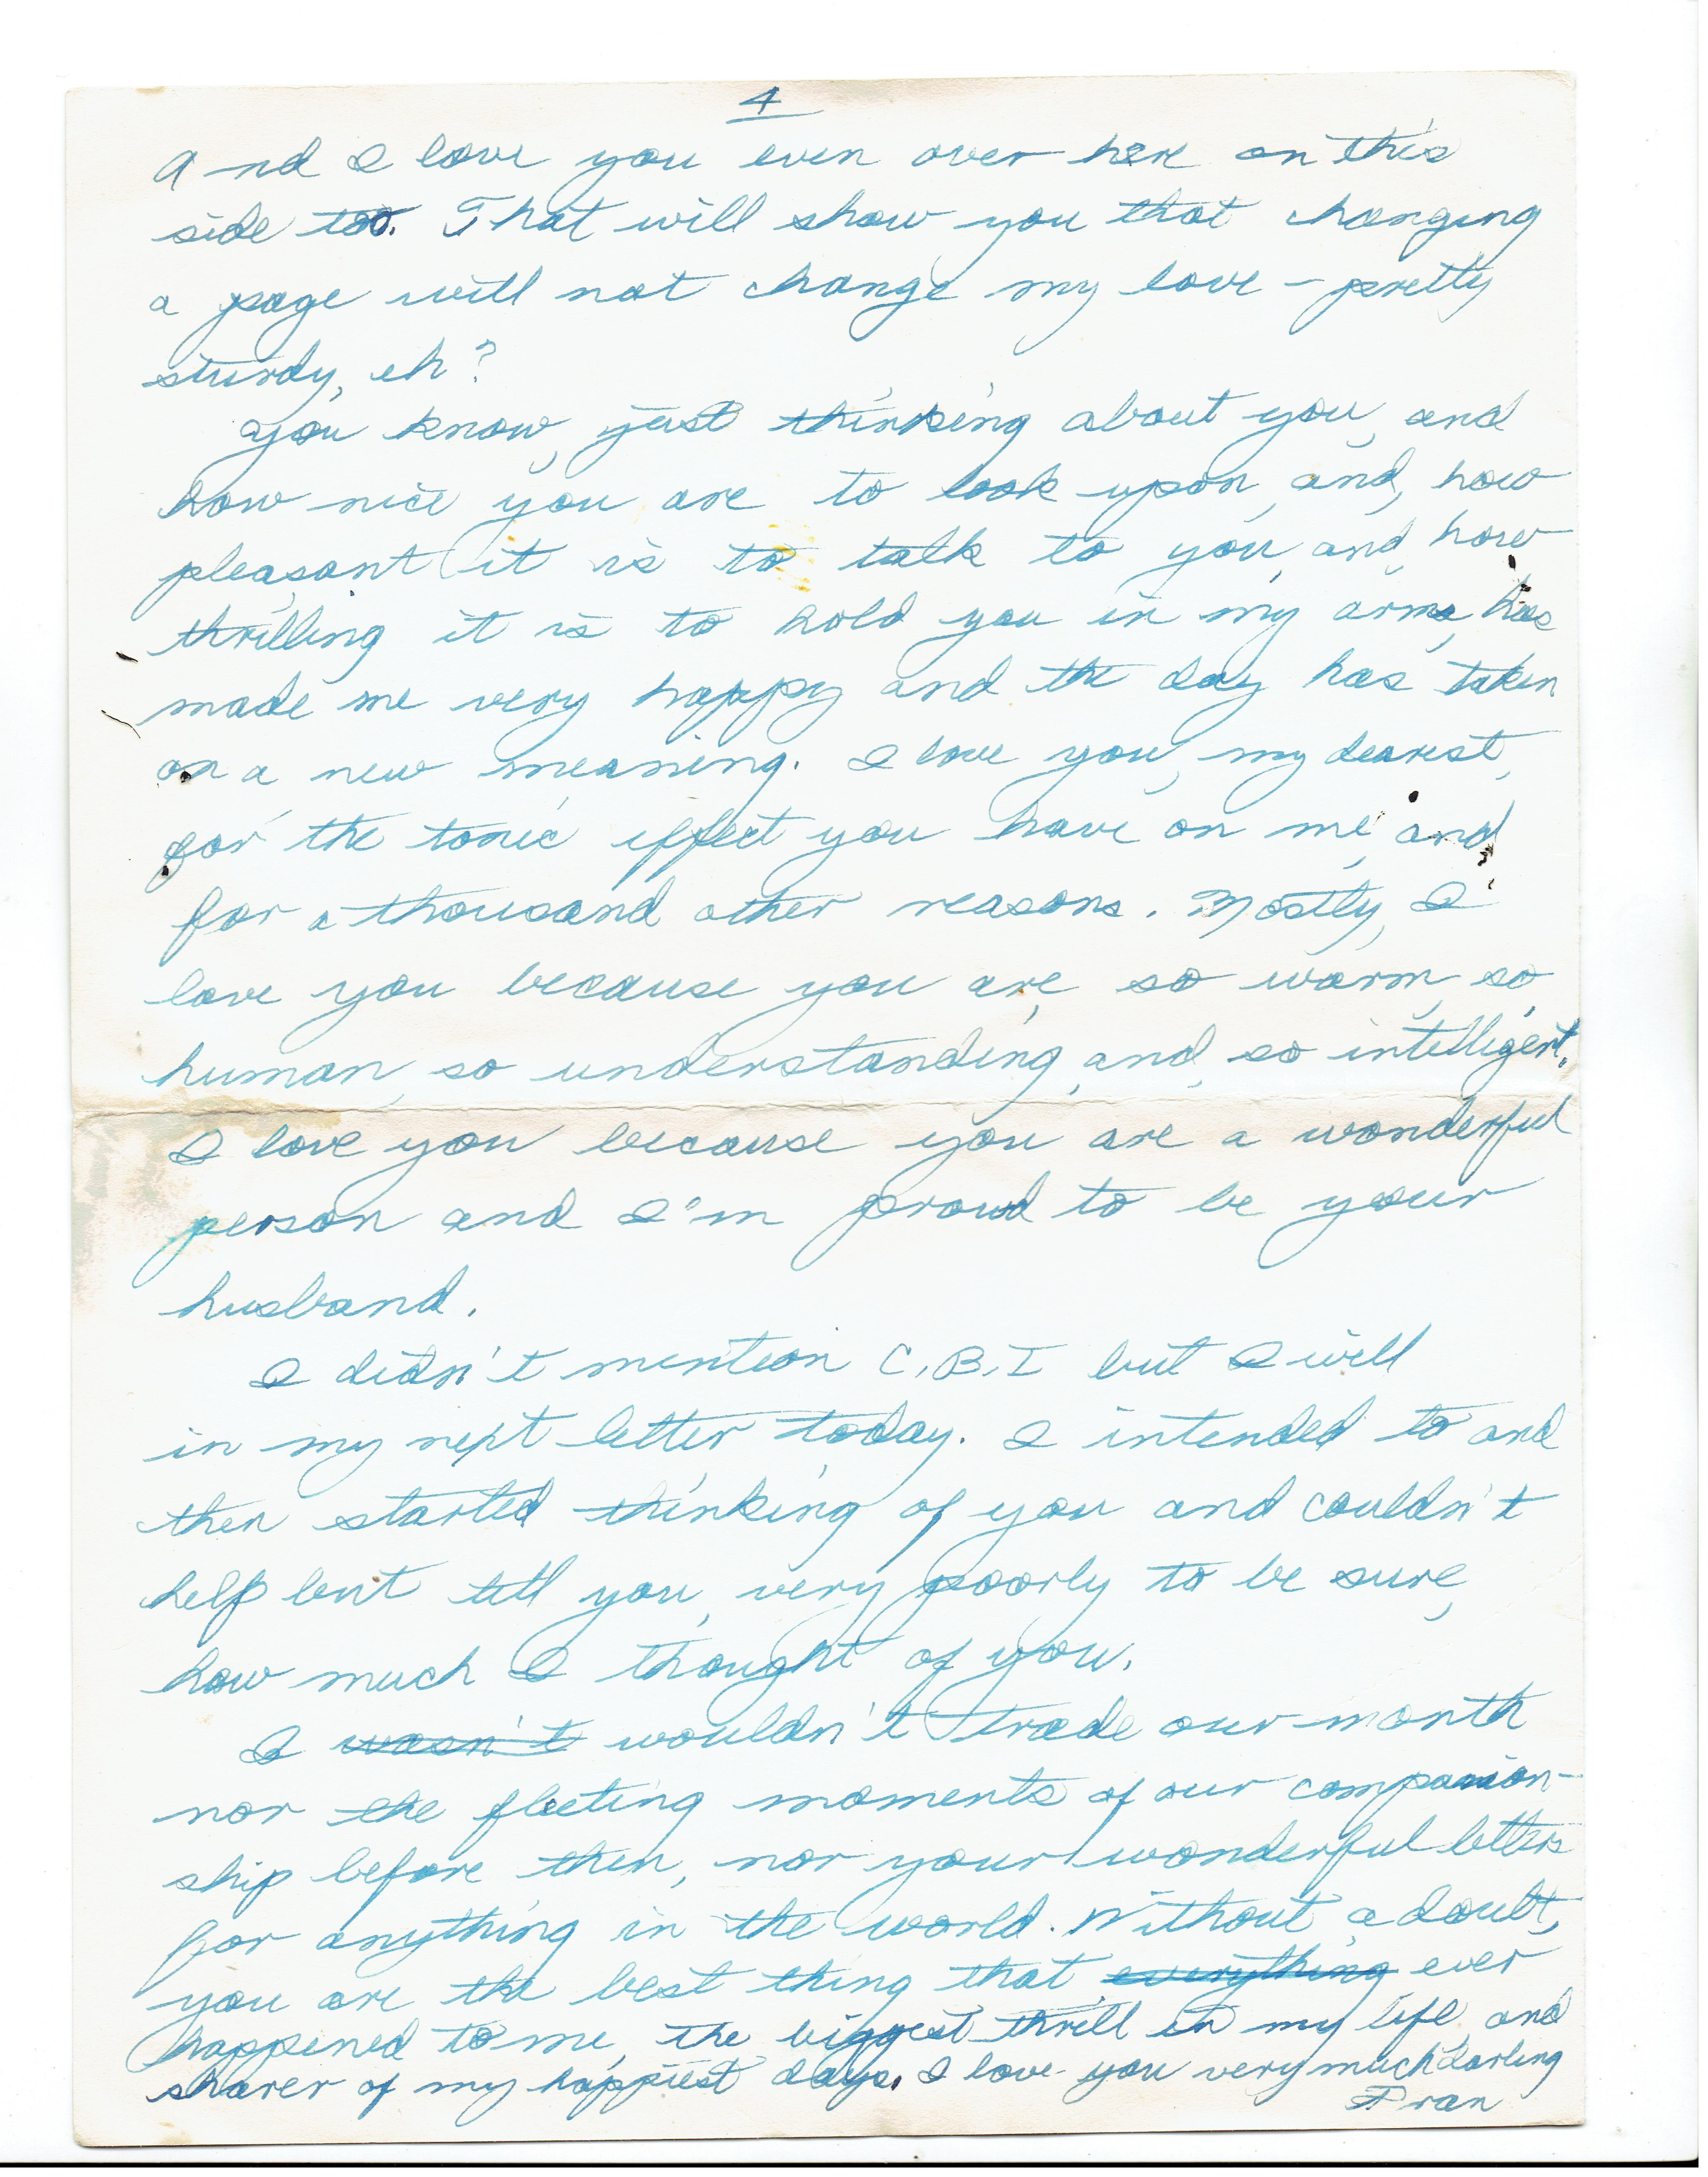 4
And I love you even over here on this
side too. That will show you that changing
a page will not change my love - pretty
sturdy, eh?
You know, just thinking about you, and
how nice you are to look upon, and, how
pleasant it is to talk to you, and, how
thrilling it is to hold you in my arms, has
made me very happy and the day has taken
on a new meaning. I love you, my dearest,
for the tonic effect you have on me, and
for a thousand other reasons. Mostly, I
love you because you are, so warm, so,
human, so understanding, and, so intelligent.
I love you because you are a wonderful
person and I'm proud to be your
husband.
I didn't mention C.B.I but I will
in my next letter today. I intended to and
then started thinking of you and couldn't
help but tell you, very poorly to be sure,
how much I thought of you.
I wasn't wouldn't trade our month
nor the fleeting moments of our companion-
ship before then, nor your wonderful letters
for anything in the world. Without a doubt,
you are the best thing that everything ever
happened to me, the biggest thrill in my life, and
sharer of my happiest days. I love you very much darling
Fran